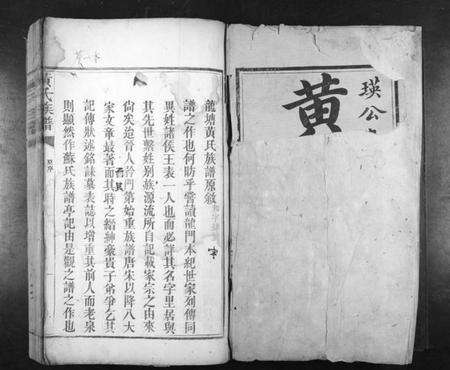 瑛公
黃
龍塘黃氏族譜原敘
譜之作也何昉乎嘗讀龍門本紀世家列傳同
異姓諸侯王表一人也而必詳其名字里居與
其先世繫姓別族源流所自記載家宗之由來
尚矣迨晉人矜門第始重族譜唐朱以降八大
家文章最著而其時之縉紳豪貴子弟爭乞其
記傳狀述銘誄墓表誌以增重其前人而老泉
則顯然作蘇氏族譜亭記由是觀之譜之作也
黃氏族譜
原序